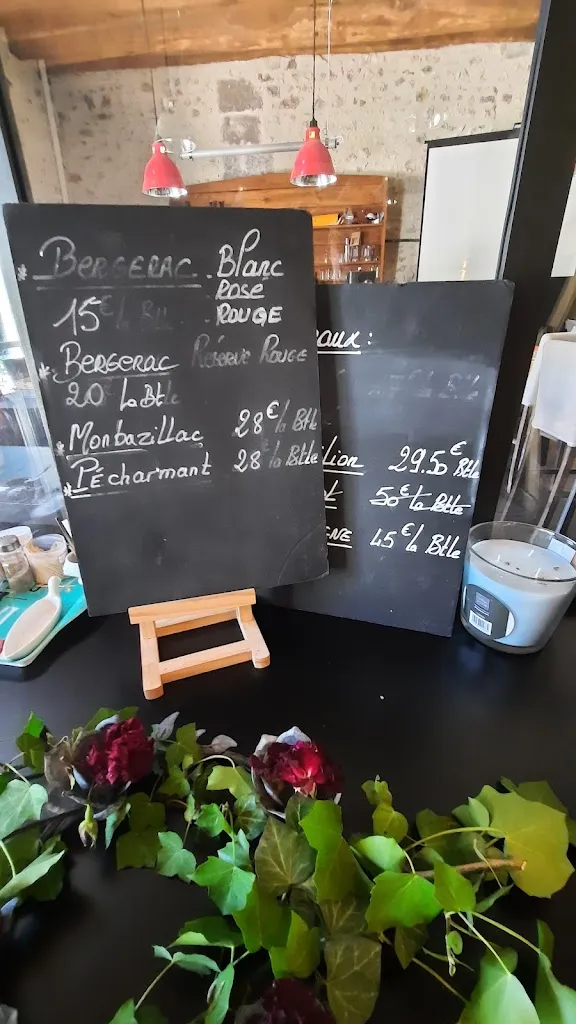 * BERGERAC . Blanc
. ROSÉ
15€ la Btl . ROUGE
* BERGERAC Réserve ROUGE
20 la Btle
* Monbazillac 28€ la Btle
* PÉcharmant 28€ la Btle
aux :
lion 29.50€ Btle
50€ la Btle
NE 45€ la Btle